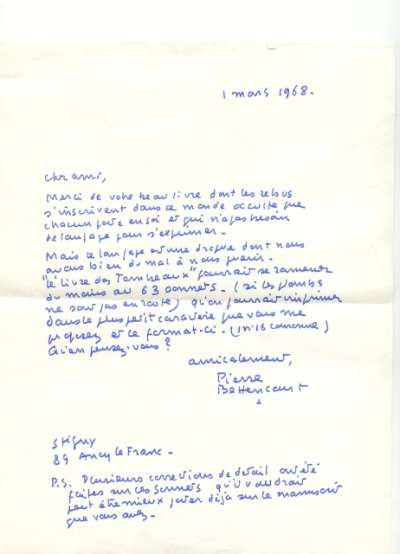 1 mars 1968.
Cher ami,
Merci de votre beau livre dont les rébus
s'inscrivent dans ce monde occulte que
chacun porte en soi et qui n'a pas besoin
de langage pour s'exprimer.
Mais le langage est une drogue dont nous
avons bien du mal à nous guérir.
"Le livre des Tombeaux" pourrait se ramener
du moins au 63 sonnets. (si les plombs
ne sont pas en route) qu'on pourrait imprimer
dans le plus petit caractère que vous me
proposez et ce format-ci. (in-16 couronne)
Qu'en pensez-vous?
amicalement,
Pierre
Bettencourt
Stigny
89 Ancy le Franc.
P.S. Plusieurs corrections de détail ont été
faites sur les sonnets qu'il vaudrait
peut être mieux porter déjà sur le manuscrit
que vous avez.